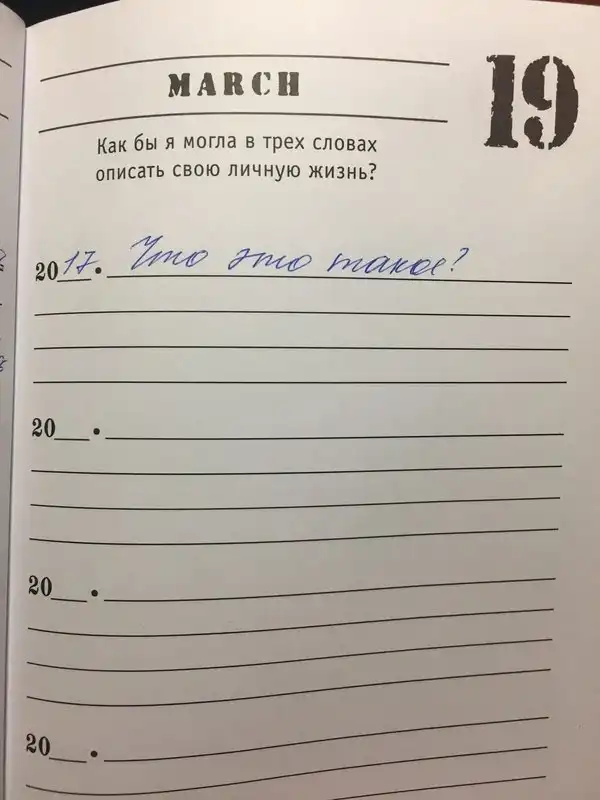 MARCH
19
Как бы я могла в трех словах
описать свою личную жизнь?
2017. Что это такое?
20__.
20__.
20__.